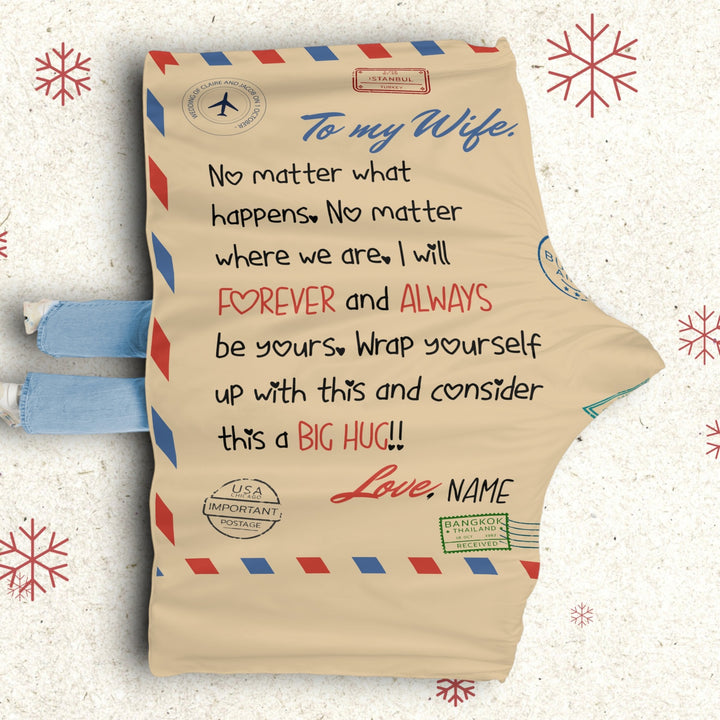 WEDDING OF CLAIRE AND JACOB ON 1 OCTOBER
ISTANBUL
TURKEY
To my Wife.
No matter what
happens. No matter
where we are. I will
FOREVER and ALWAYS
be yours. Wrap yourself
up with this and consider
this a BIG HUG!!
Love, NAME
USA
CHICAGO
IMPORTANT
POSTAGE
BANGKOK
THAILAND
RECEIVED